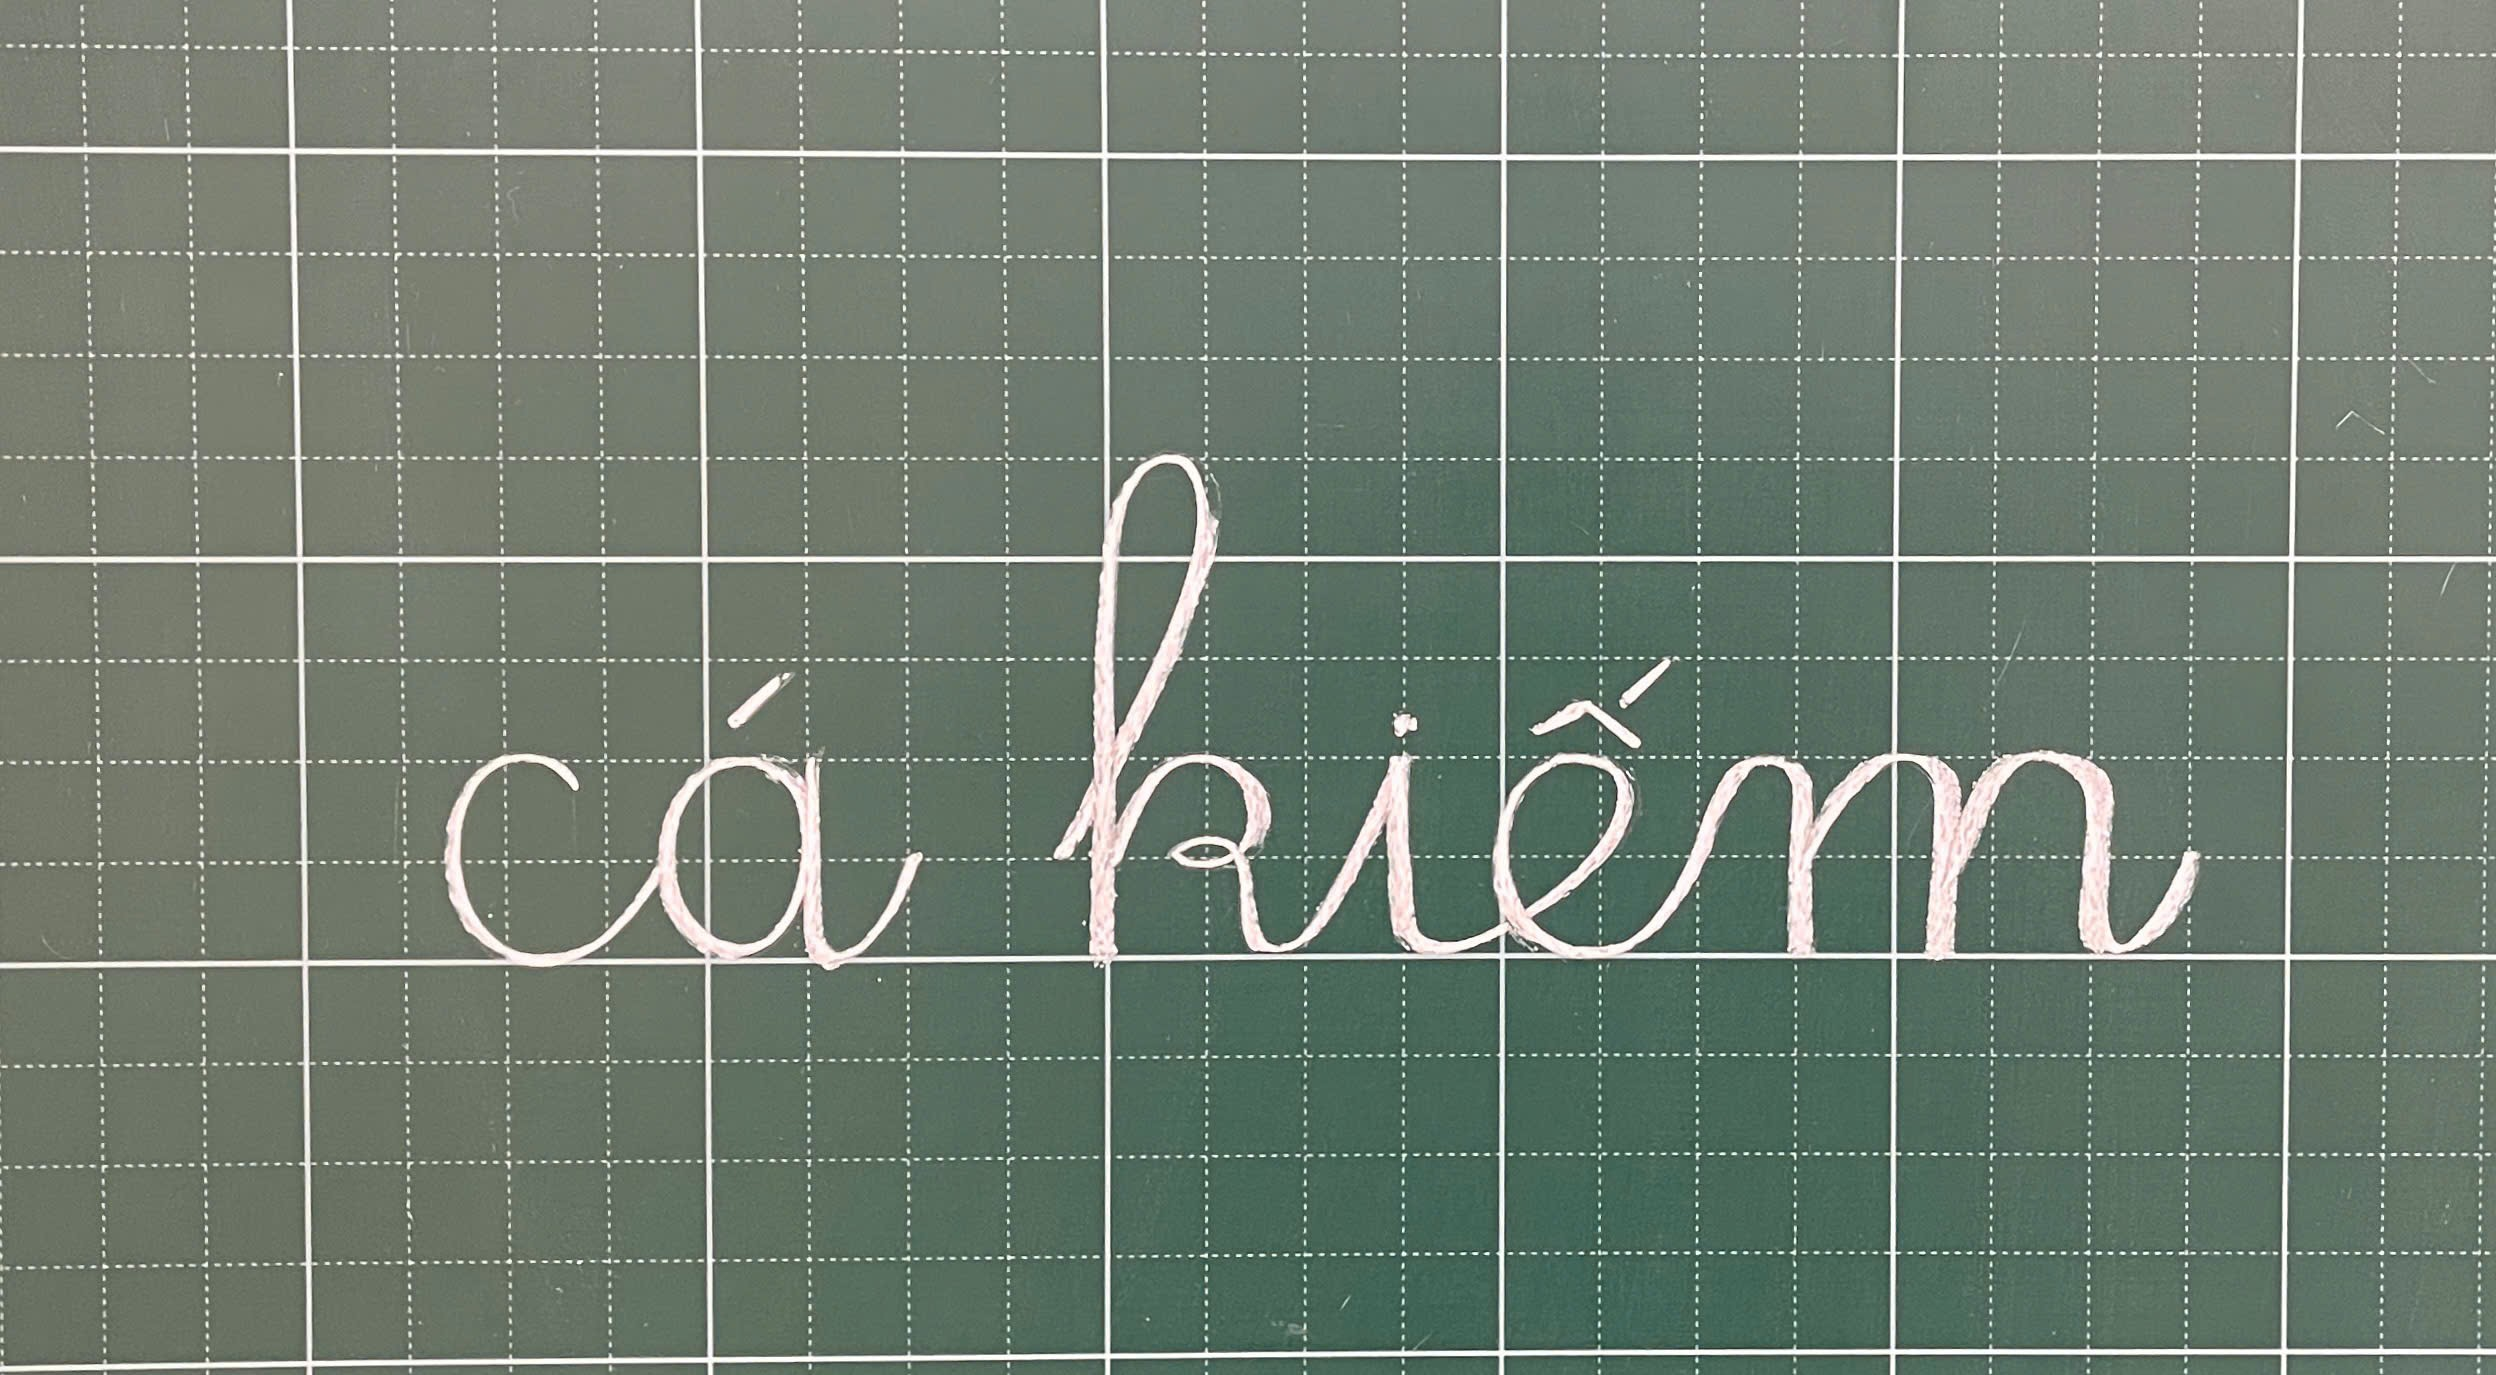 cá kiếm